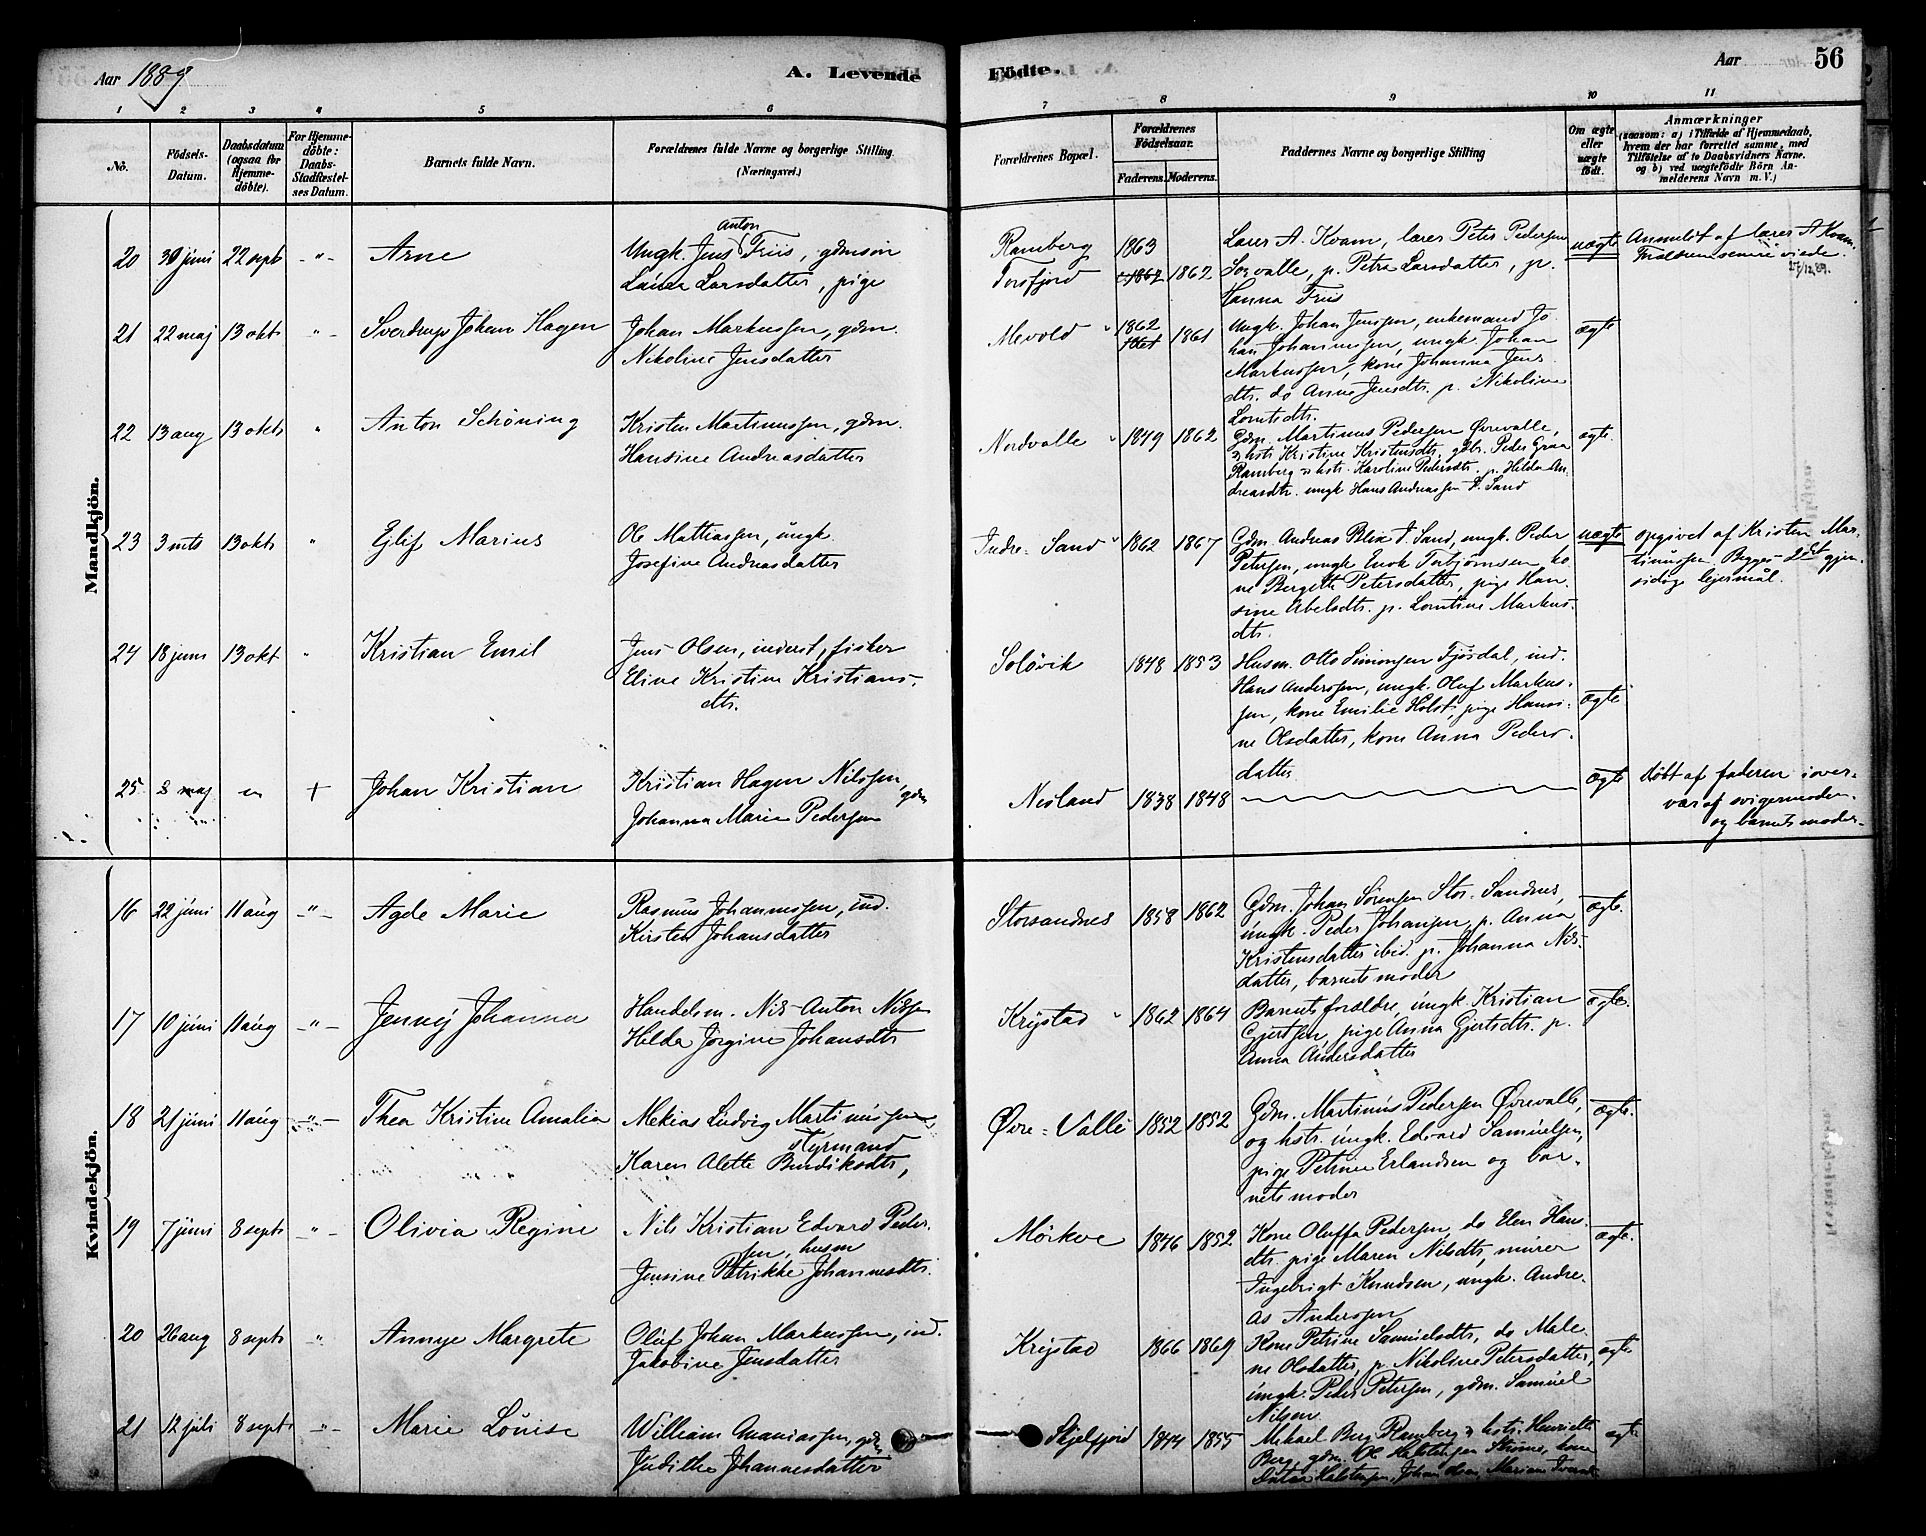 Aar 1889
A. Levende
Födte.
Aar
56
1 2 3 4 5 6 7 8 9 10 11
No.
Födsels-
Datum.
Daabsdatum
(ogsaa for
Hjemme-
döbte).
For Hjemme-
döbte:
Daabs-
Stadfæstel-
ses Datum.
Barnets fulde Navn.
Forældrenes fulde Navne og borgerlige Stilling
(Næringsvei.)
Forældrenes Bopæl.
Forældrenes
Födselsaar.
Faderens. Moderens.
Faddernes Navne og borgerlige Stilling
Om ægte
eller
uægte
födt.
Anmærkninger
(saasom: a) i Tilfælde af Hjemmedaab,
hvem der har forrettet samme, med
Tilföielse af to Daabsvidners Navne.
og b) ved uægtefödte Börn An-
melderens Navn m. V.)
Mandkjön.
20 30 juni 22 sept -"- Arne
Anton
Ungk. Jens Friis, gdmsön
Laura Larsdatter, pige
Ramberg 1863
Torsfjord 1862 1862
Lærer A. Kvam, lærer Peter Pedersen
Sørvalle, p. Petra Larsdatter, p.
Hanna Friis
uægte
Anmeldt af lærer A Kvam.
Forældrene senere viede
27/12 89.
21 22 maj 13 okt -"- Sverdrup Johan Hagen
Johan Markussen, gdm.
Nikoline Jensdatter
Mevold 1862 1861
Ungk. Johan Jenssen, enkemand Jo
han Johannessen, ungk. Johan
Markussen, kone Johanna Jens
dtr. do Anne Jensdtr. p. Nikoline
Lorntsdtr.
ægte
22 13 aug 13 okt " Anton Schöning
Kristen Martinussen, gdm.
Hansine Andreasdatter
Nordvalle 1849 1862
Gdm. Martinus Pedersen Øvrevalle,
& hstr. Kristine Kristensdtr, gdbr. Peder Graa
Ramberg & hstr. Karoline Pedersdtr. p. Hilda An-
dreasdtr. ungk Hans Andreassen I. Sand
ægte.
23 3 13 okt " Ejlif Marius
Ole Mathiassen, ungk.
Josefine Andreasdatter
Indre-Sand 1862 1867
Gdm. Andreas Blix I. Sand, ungk. Peder
Petersen, ungk Enok Torbjörnsen ko
ne Bergitte Petersdatter, pige Han
sine Abelsdtr. p. Lorntine Markus-
dtr.
uægte
opgivet af Kristen Mar-
tinussen. Begges 2det gjen-
sidige lejermål.
24 18 juni 13 okt " Kristian Emil
Jens Olsen, inderst, fisker
Eline Kristine Kristians-
dtr.
Solövik 1848 1853
Husm. Otto Simonsen Fjösdal, ind.
Hans Anderssen, ungk. Oluf Markus-
sen, kone Emilie Holst, pige Hansi-
ne Olsdatter, kone Anna Peders-
datter
ægte
25 8 maj + Johan Kristian
Kristian Hagen Nilssen, gdm
Johanna Marie Pedersen
Nesland 1838 1848
ægte
døbt af faderen i over-
vær af svigermoder-
og barnets moder-
Kvindekjön.
16 22 juni 11 aug -"- Agde Marie
Rasmus Johannessen, ind.
Kirsten Johansdatter
Storsandnes 1858 1862
Gdm. Johan Sørensen Stor-Sandnes,
ungk. Peder Johansen, p. Anna
Kristensdatter ibid. p. Johanna Nils-
datter, barnets moder
ægte.
17 10 juni 11 aug -"- Jenny Johanna
Handelsm. Nils Anton Nilsen
Helda Jörgine Johansdtr
Krystad 1862 1864
Barnets forældre, ungk. Kristian
Gjertsen, pige Anna Gjertsdtr. p.
Anna Andersdatter
ægte.
18 21 juni 11 aug -"- Thea Kristine Amalia
Mekias Ludvig Martinussen
styrmand
Karen Alette Bendiksdtr,
Øvre-Valle 1852 1852
Gdm. Martinus Pedersen Øvrevalle,
og hstr. ungk. Edvard Samuelsen,
pige Petrine Erlandsen og bar-
nets moder
ægte.
19 7 juni 8 sept -"- Olivia Regine
Nils Kristian Edvard Peder-
sen, husm
Jensine Patrikke Johannesdtr.
Mörkve 1846 1852
Kone Oluffa Pedersen, do Elen Han-
dtr. pige Maren Nilsdtr, murer
Ingebrigt Knudsen, ungk. Andre-
as Anderssen
ægte.
20 26 aug 8 sept -"- Annye Margrete
Oluf Johan Markussen, ind.
Jakobine Jensdatter
Krystad 1866 1869
Kone Petrine Samuelsdtr, do Male-
ne Olsdatter, p. Nikoline Petersdatter,
ungk. Peder Petersen, gdm. Samuel
Nilsen
ægte
21 12 juli 8 sept -"- Marie Louise
William Ananiassen, gdm
Judithe Johannesdatter
Skjelfjord 1844 1855
Mikael Berg Ramberg & hstr. Henriette
Berg, gdm. Ole Halstensen Strömö, kone
ægte